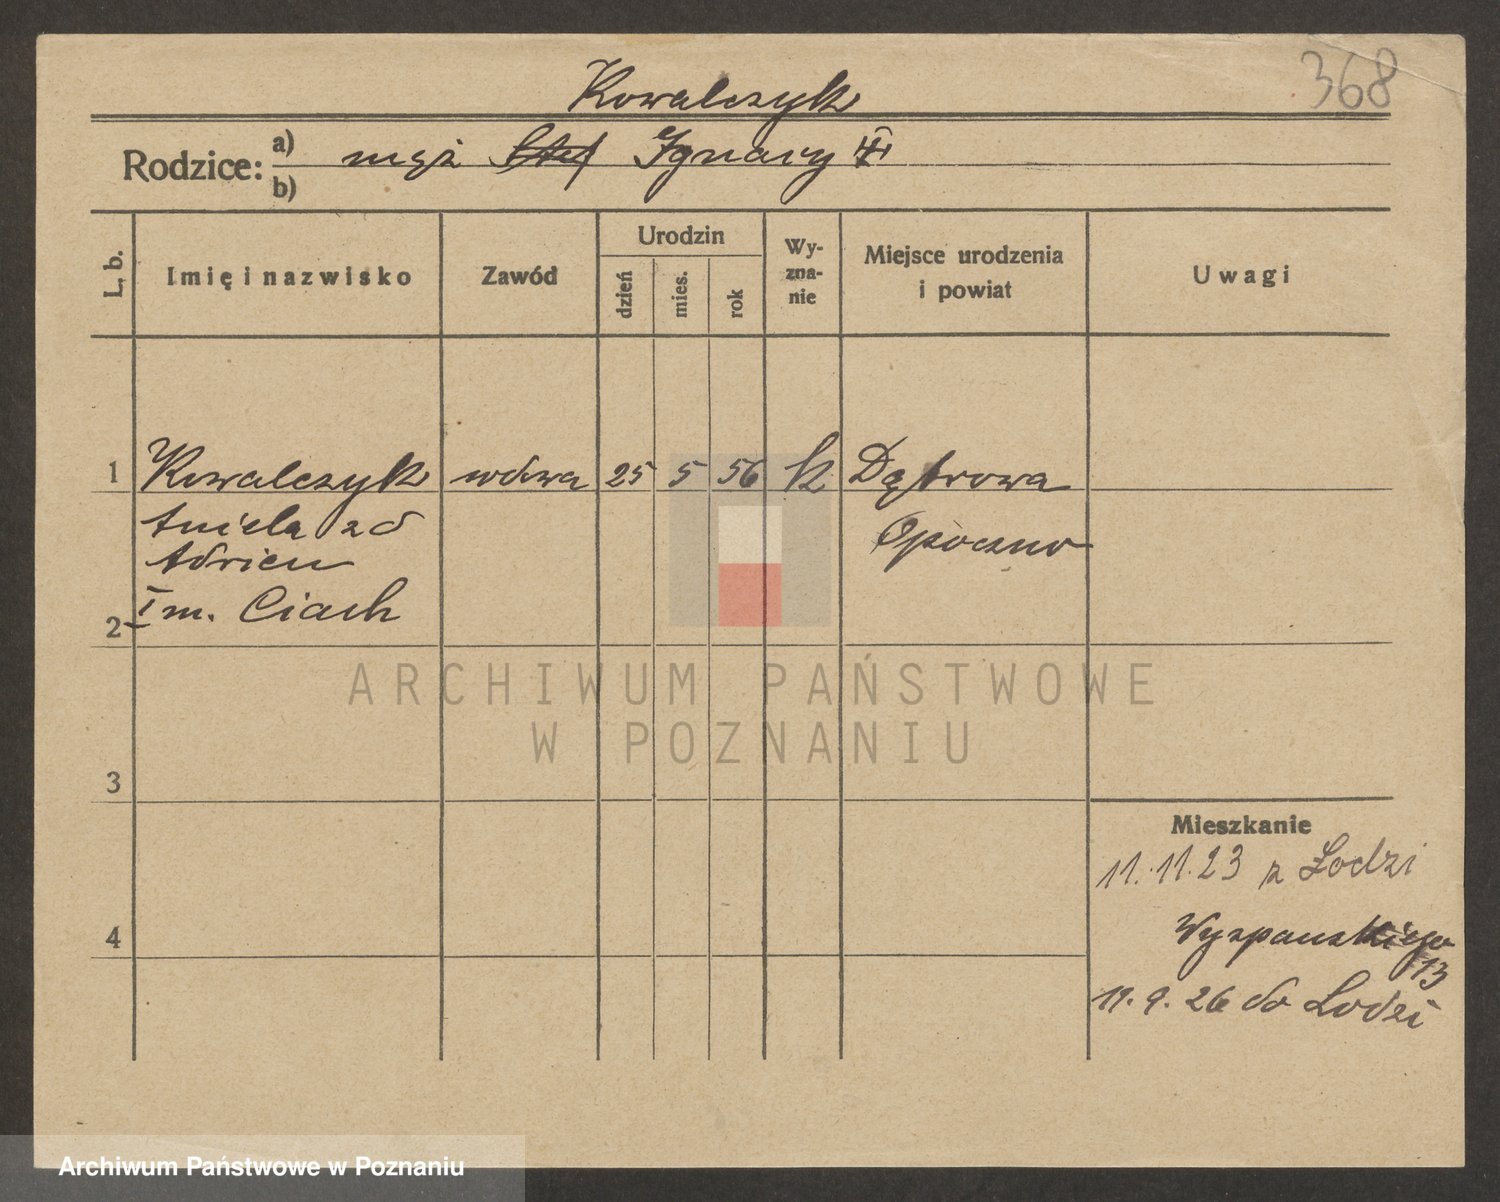 368
Kowalczyk
Rodzice: a) mąż Ignacy
b)
L. b.
Imię i nazwisko
Zawód
Urodzin
dzień
mies.
rok
Wy-
zna-
nie
Miejsce urodzenia
i powiat
Uwagi
1 Kowalczyk wdowa 25 5 56 k Dąbrowa
Aniela zd Opoczno
Adrien
I m. Ciach
2
3
4
Mieszkanie
11.11.23 z Łodzi
Wyspianskiego
13
19.9.26 do Lodzi
ARCHIWUM PAŃSTWOWE
W POZNANIU
Archiwum Państwowe w Poznaniu